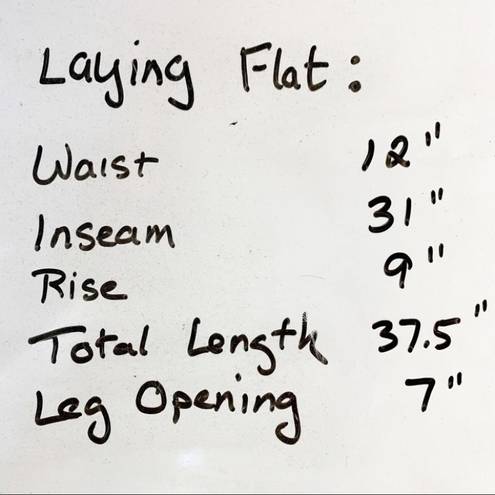 Laying Flat:
Waist 12"
Inseam 31"
Rise 9"
Total Length 37.5"
Leg Opening 7"